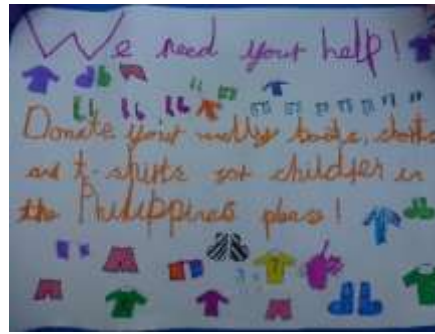 We need your help!
Donate your welly boots, shorts
and t-shirts for children in
the Philippines please!